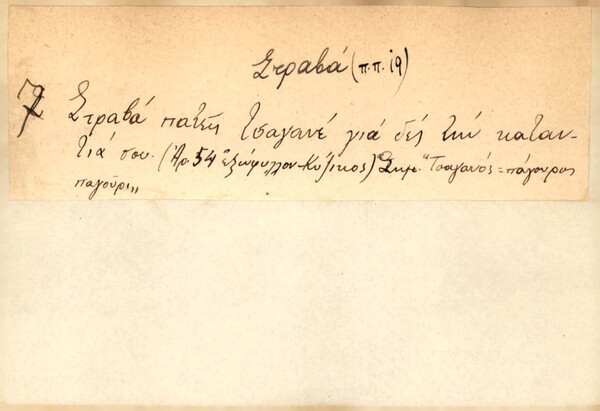 Στραβά (π.π. 19)
79 Στραβά πατεῖς Τσαγανέ γιά δές τήν καταν-
τιά σου. (Ἀρ. 54 "ἐξώφυλλον-Κύζικος) Σημ. "Τσαγανός = πάγουρος
παγοῦρι"